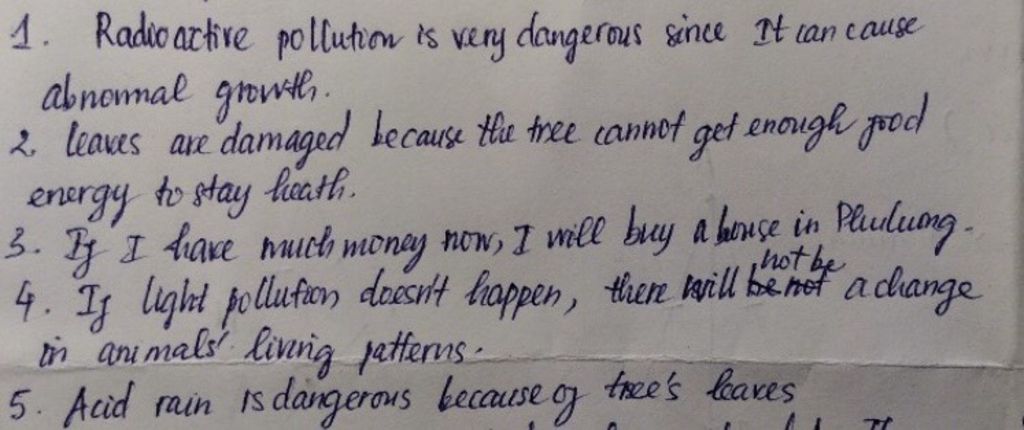 1. Radioactive pollution is very dangerous since It can cause
abnormal growth.
2. leaves are damaged because the tree cannot get enough food
energy to stay heath.
3. If I have much money now, I will buy a house in
4. If light pollution doesn't happen, there will not be a change
in animals' living patterns.
5. Acid rain is dangerous because of tree's leaves